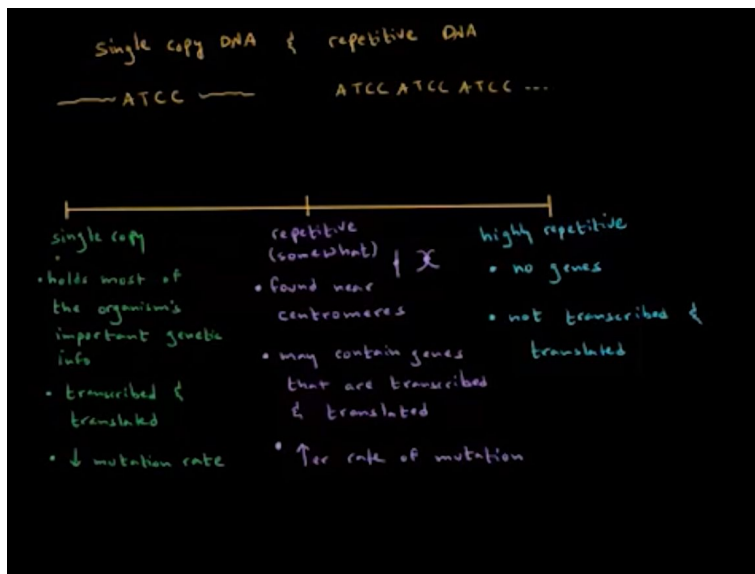 single copy DNA & repetitive DNA
ATCC
ATCC ATCC ATCC ...
single copy
• holds most of
the organism's
important genetic
info
• transcribed &
translated
• ↓ mutation rate
repetitive
(somewhat)
• found near
centromeres
• may contain genes
that are transcribed
& translated
• ↑er rate of mutation
highly repetitive
• no genes
• not transcribed &
translated